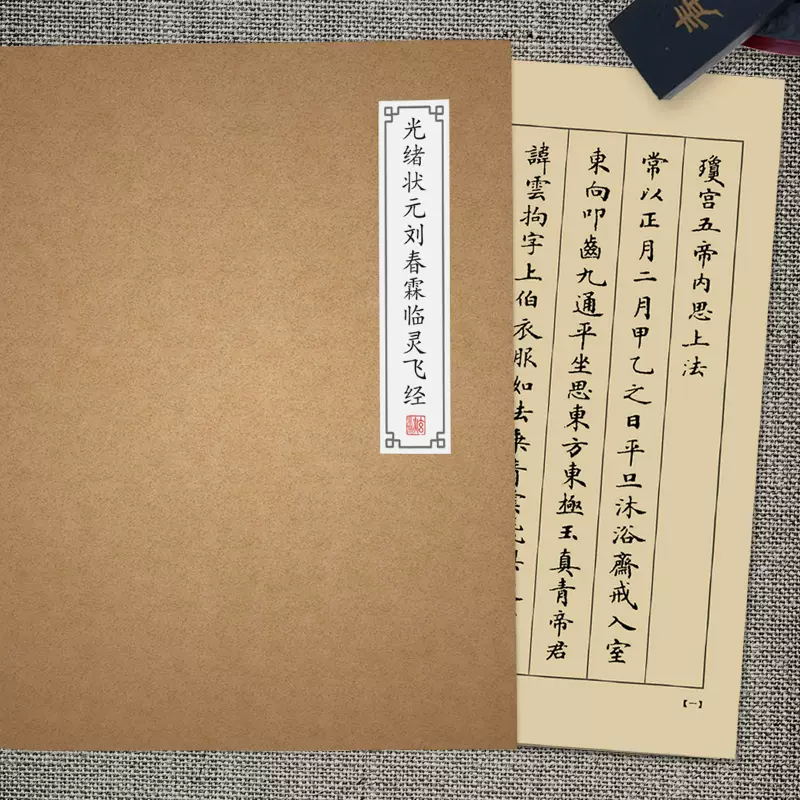 光绪状元刘春霖临灵飞经
瓊宫五帝内思上法
常以正月二月甲乙之日平旦沐浴齋戒入室
東向叩齒九通平坐思東方東極玉真青帝君
諱雲拘字上伯衣服如法乘青雲
【一】